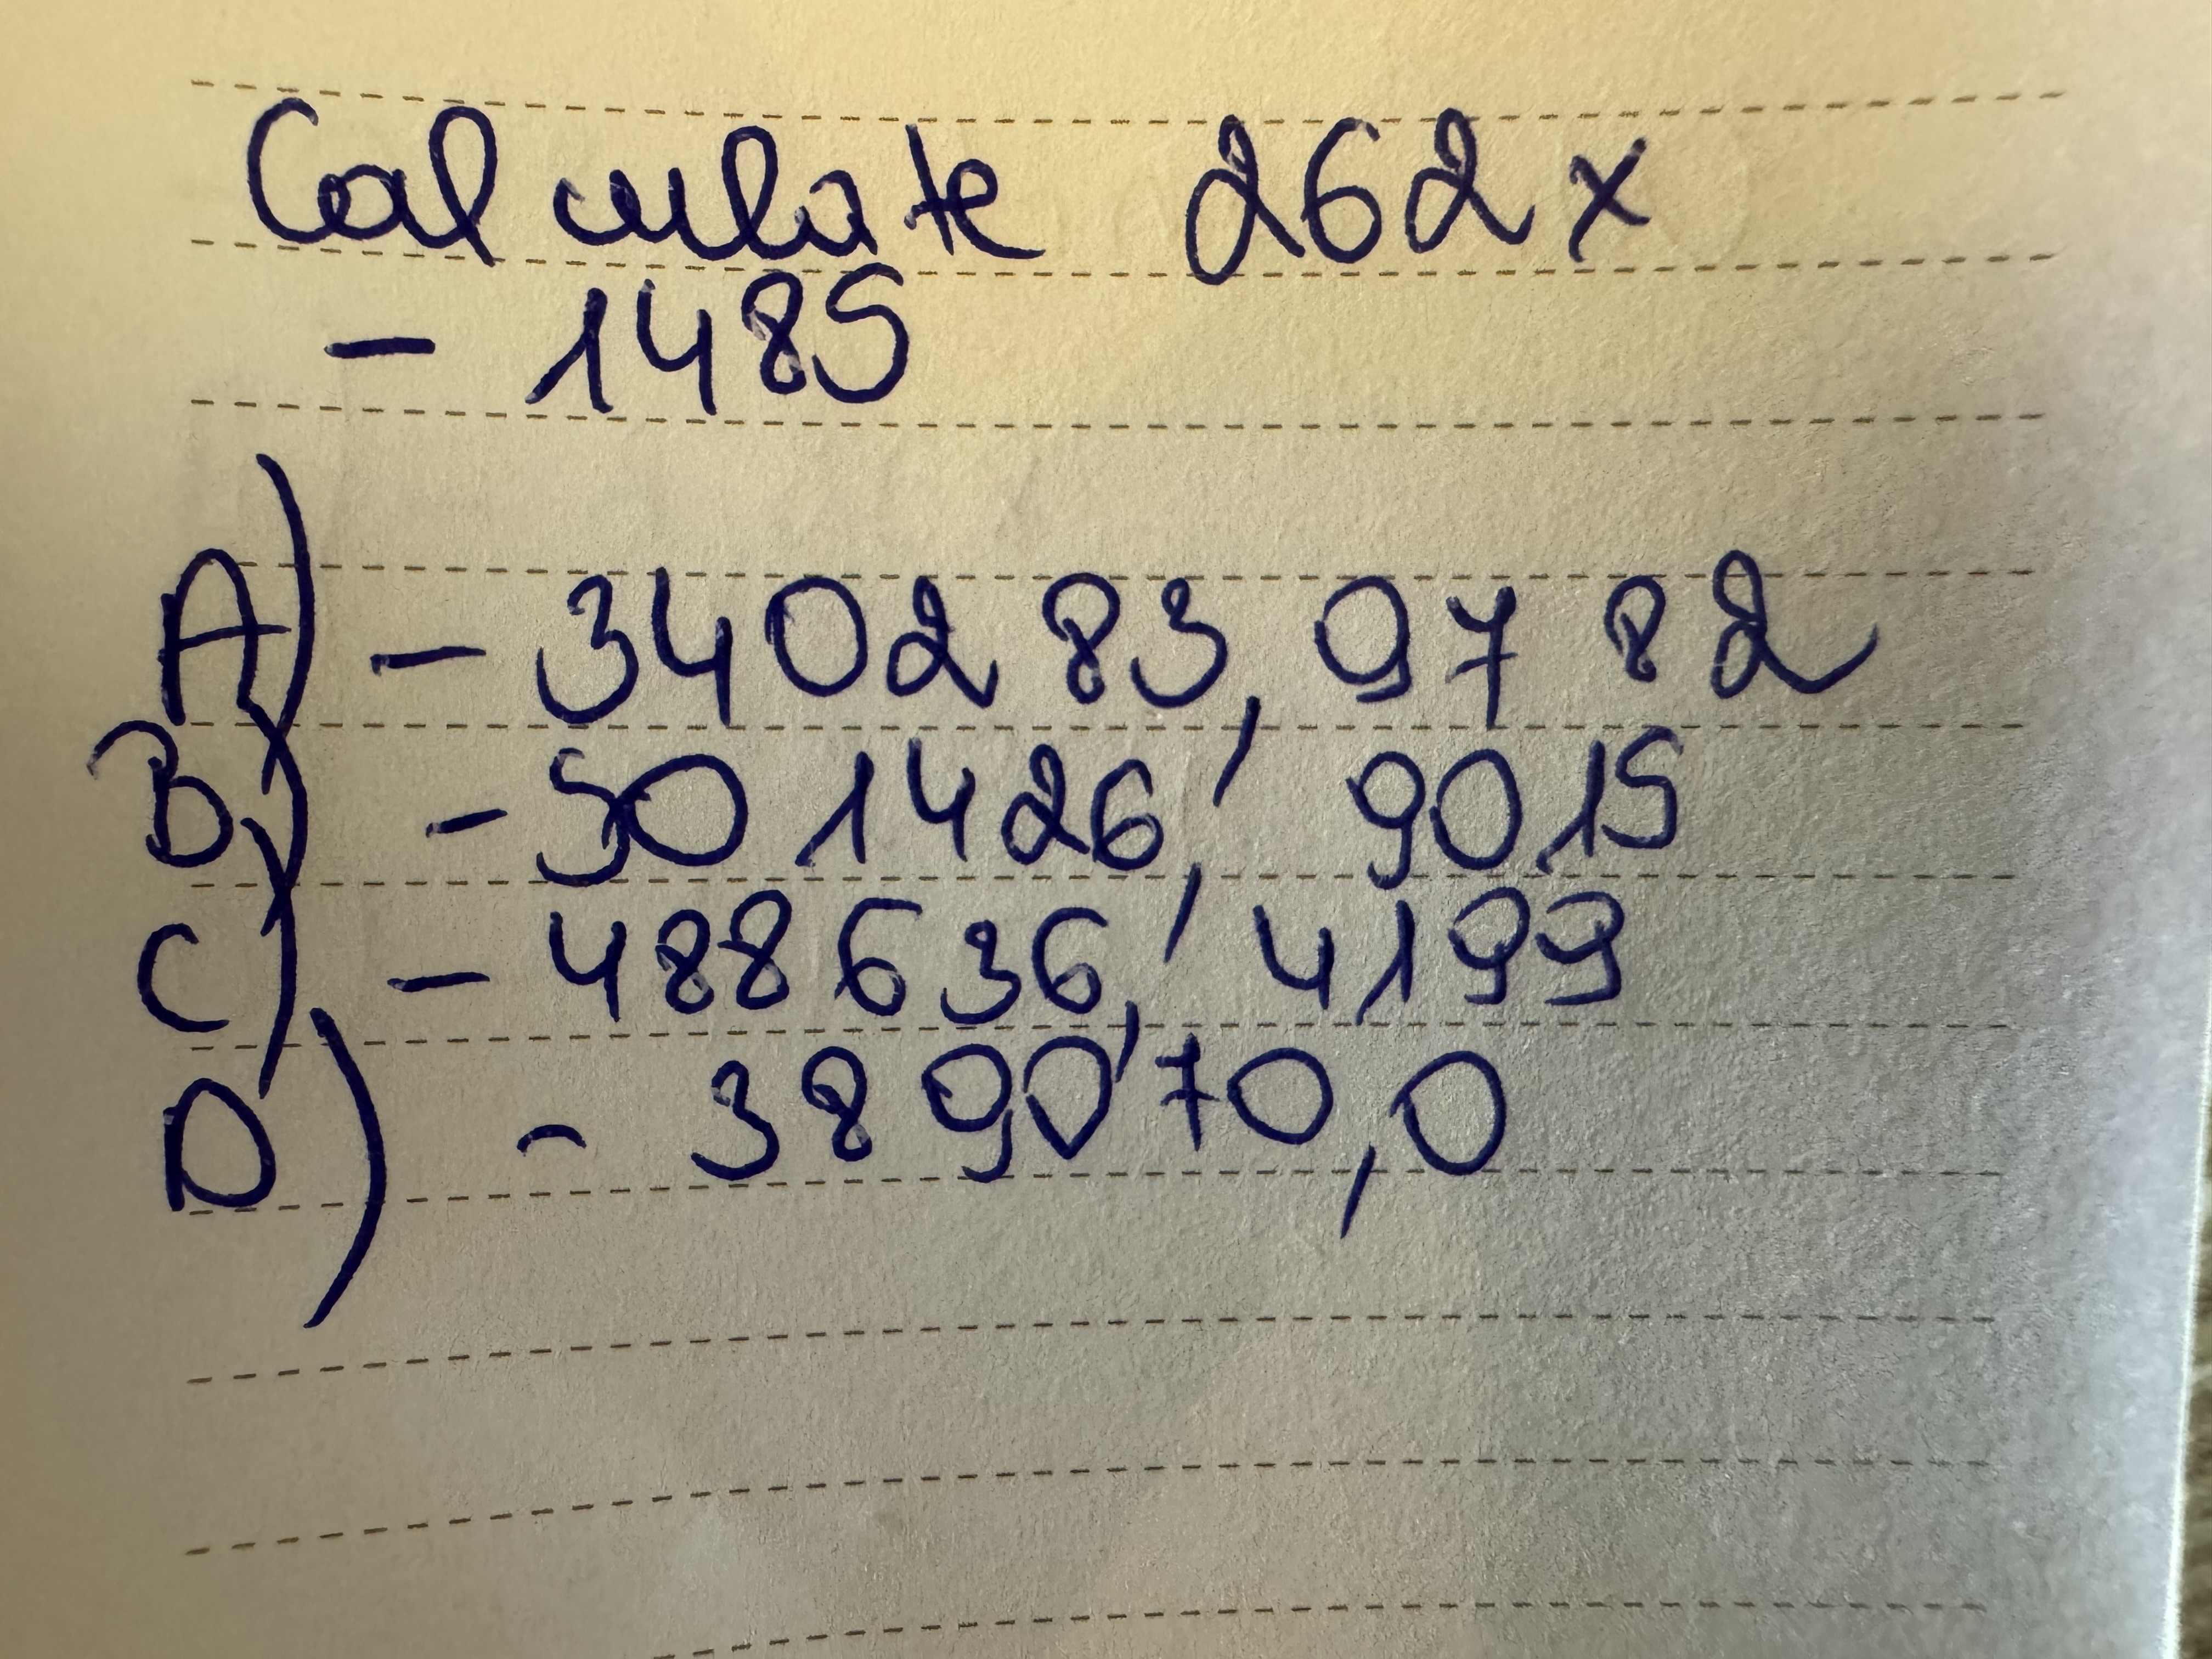 Calculate 262 x
- 1485
A) - 340283,9782
B) - 501426,9015
C) - 488636,4199
D) - 389070,0